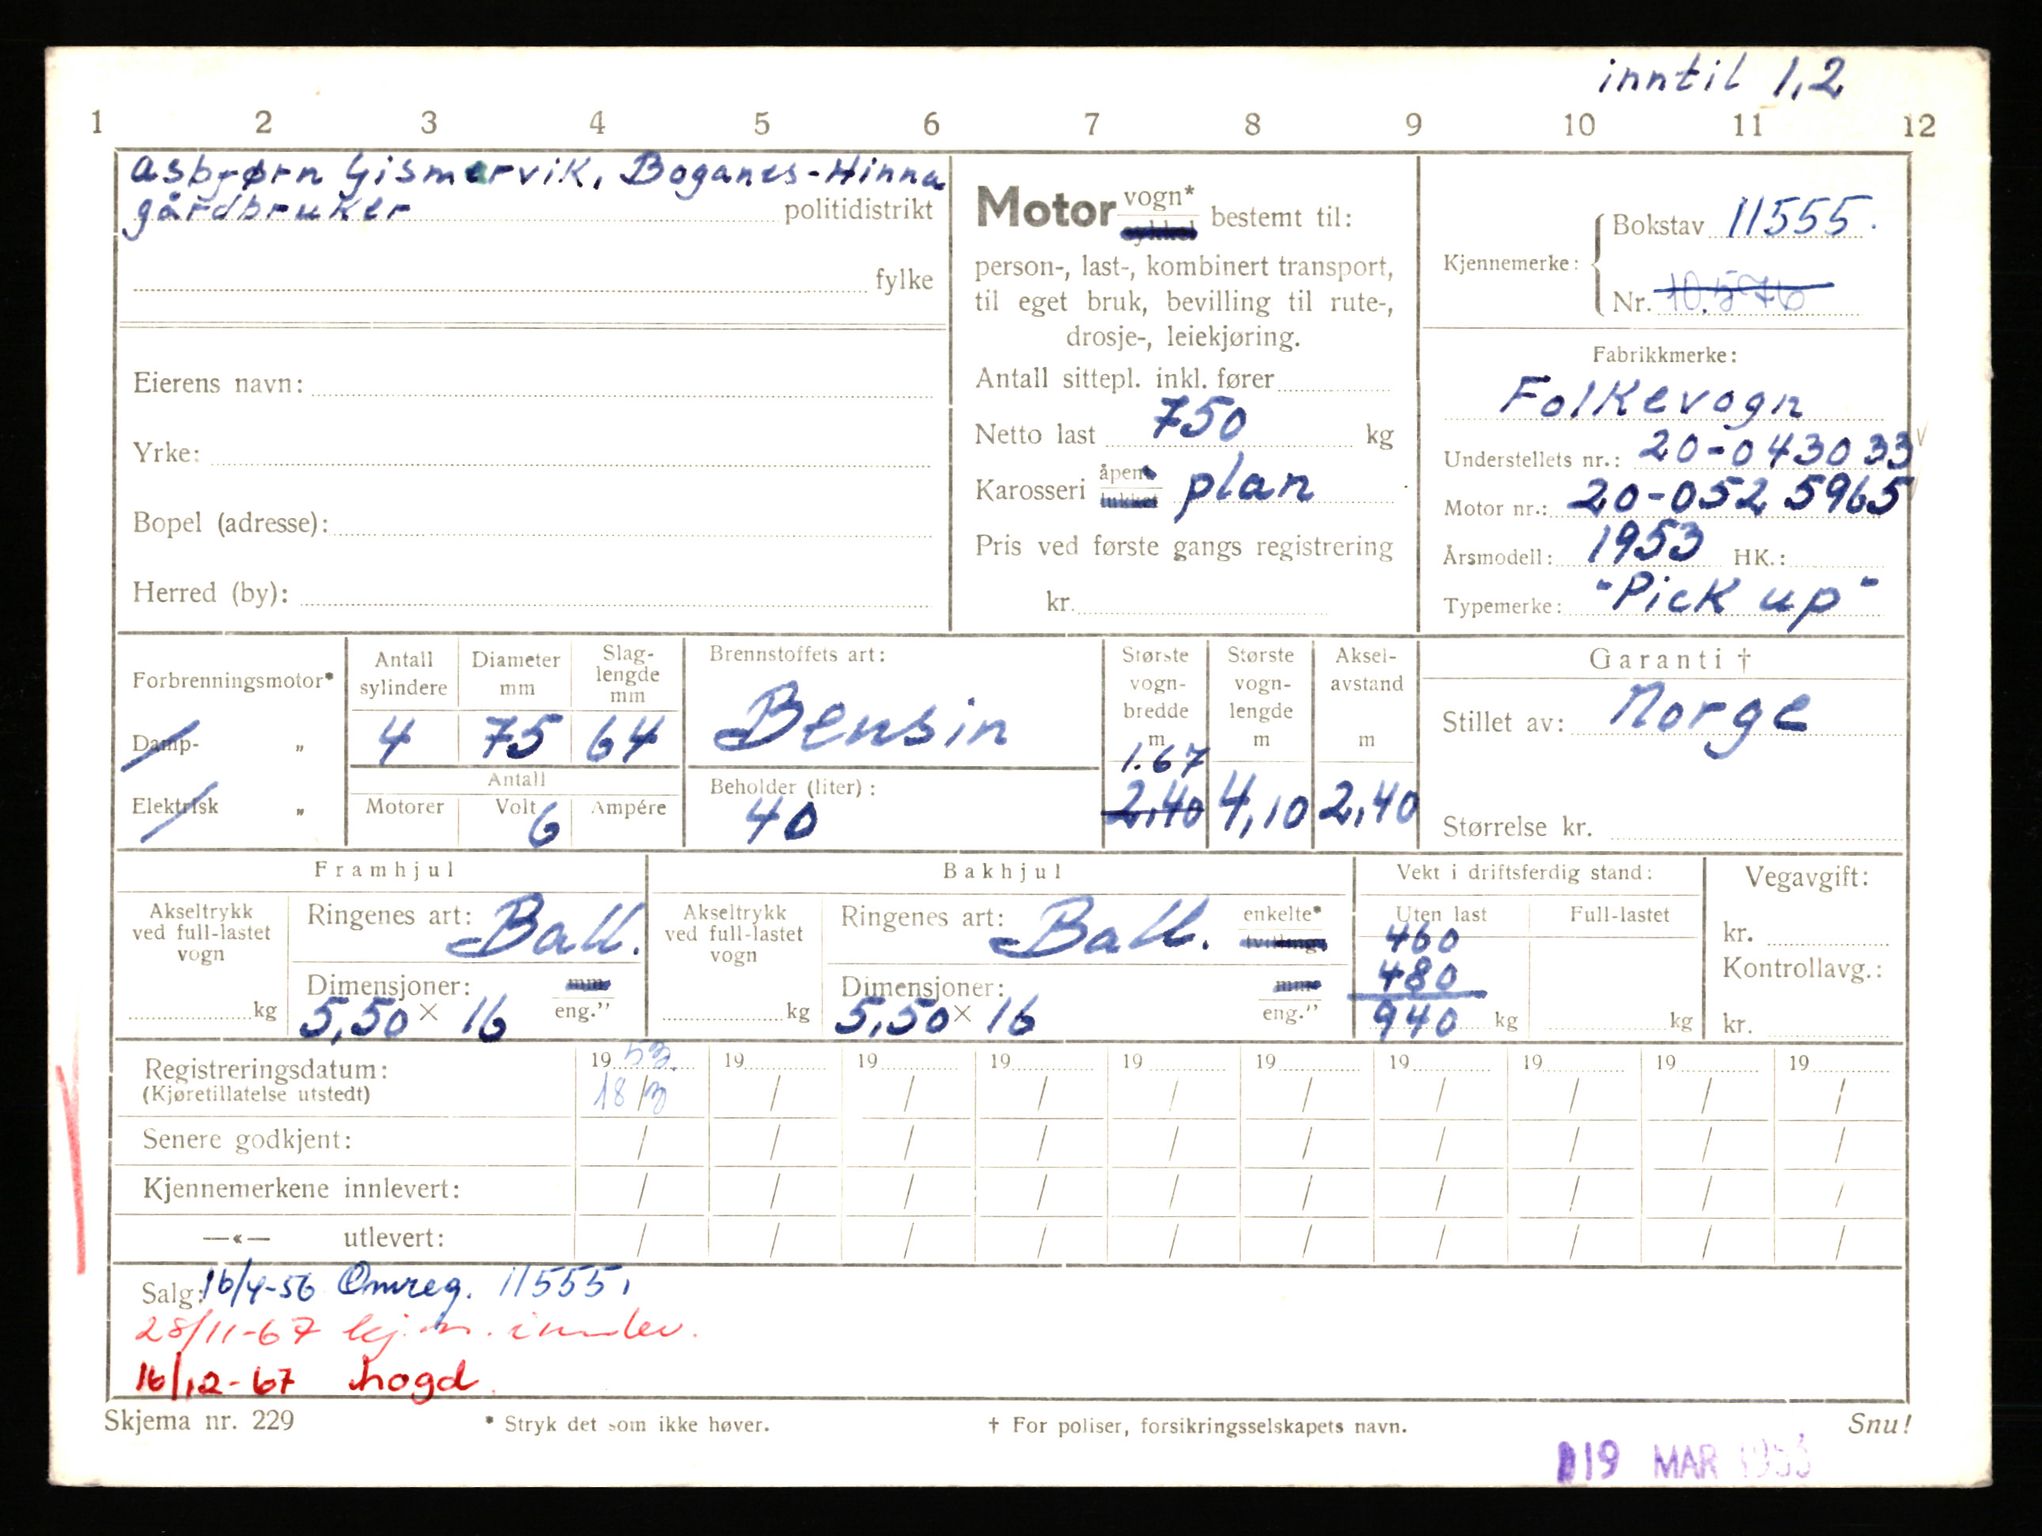 inntil 1,2
1 2 3 4 5 6 7 8 9 10 11 12
Asbjørn Gismervik, Boganes-Hinna
gårdbruker politidistrikt
fylke
Eierens navn:
Yrke:
Bopel (adresse):
Herred (by):
Motor vogn* sykkel bestemt til:
person-, last-, kombinert transport,
til eget bruk, bevilling til rute-,
drosje-, leiekjøring.
Antall sittepl. inkl. fører
Netto last 750 kg
Karosseri åpent lukket plan
Pris ved første gangs registrering
kr.
Kjennemerke: Bokstav 11555.
Nr. 10.576
Fabrikkmerke:
Folkevogn
Understellets nr.: 20-043033
Motor nr.: 20-052 5965
Årsmodell: 1953 HK.:
Typemerke: "Pick up"
Forbrenningsmotor*
Damp- „
Elektrisk „
Antall sylindere
4
Diameter mm
75
Slag-lengde mm
64
Antall
Motorer Volt 6 Ampére
Brennstoffets art:
Bensin
Beholder (liter):
40
Største vogn-bredde m
1.67
2,40
Største vogn-lengde m
4,10
Aksel-avstand m
2,40
Garanti †
Stillet av: Norge
Størrelse kr.
Framhjul
Akseltrykk ved full-lastet vogn
kg
Ringenes art: Ball.
Dimensjoner: mm
5,50 × 16 eng."
Bakhjul
Akseltrykk ved full-lastet vogn
kg
Ringenes art: Ball. enkelte* tvillings
Dimensjoner: mm
5,50 × 16 eng."
Vekt i driftsferdig stand:
Uten last Full-lastet
460
480
940 kg kg
Vegavgift:
kr.
Kontrollavg.:
kr.
Registreringsdatum: 19 53. 19 19 19 19 19 19 19 19 19
(Kjøretillatelse utstedt) 18/3 / / / / / / / / /
Senere godkjent: / / / / / / / / / /
Kjennemerkene innlevert: / / / / / / / / / /
—«— utlevert: / / / / / / / / / /
Salg: 16/4-56 Omreg. 11555.
28/11-67 kj.m. innlev.
16/12-67 hogd
Skjema nr. 229 * Stryk det som ikke høver. † For poliser, forsikringsselskapets navn. Snu!
19 MAR 1953